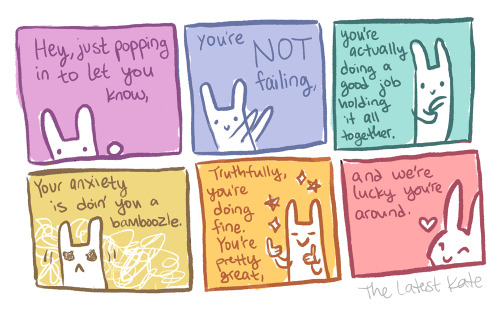 Hey, just popping
in to let you
know,
you're
NOT
failing,
you're
actually
doing a
good job
holding
it all
together.
Your anxiety
is doin' you a
bamboozle.
Truthfully,
you're
doing
fine.
You're
pretty
great,
and we're
lucky you're
around.
The Latest Kate